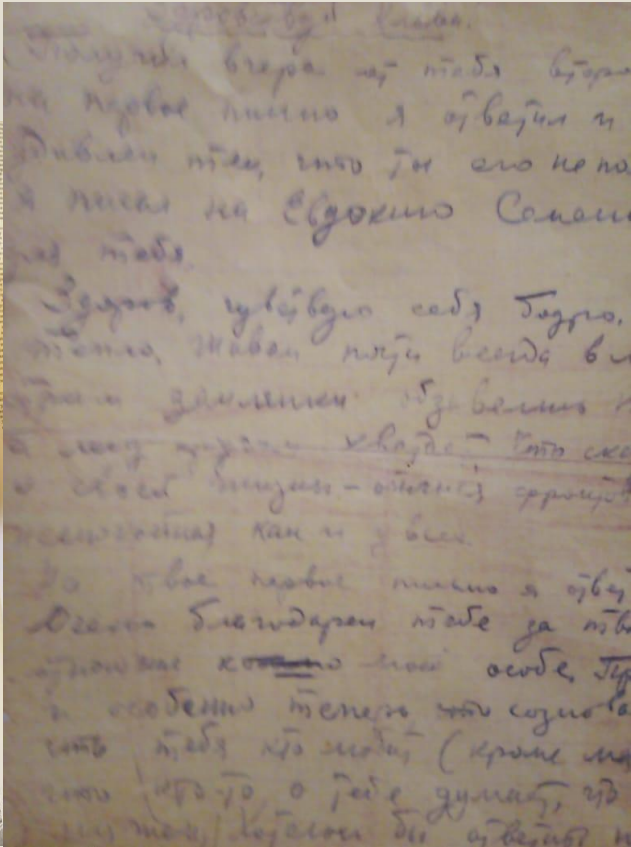 Здравствуй Клава.
Получил вчера от тебя второ
на первое письмо я ответил и
удивлен тем, что ты его не по
я писал на Евдокию Семено
для тебя.
Здоров, чувствую себя бодро.
Тепло, живем почти всегда в
землянки обзавелись
хватает Что ска
о своей жизни - фронтов
как и у всех
На твое первое письмо я отве
Очень благодарен тебе за тв
отношение к моей особе,
и особенно теперь что сознава
есть тебя кто любит (кроме ма
что кто-то о тебе думает, что
бы ответить